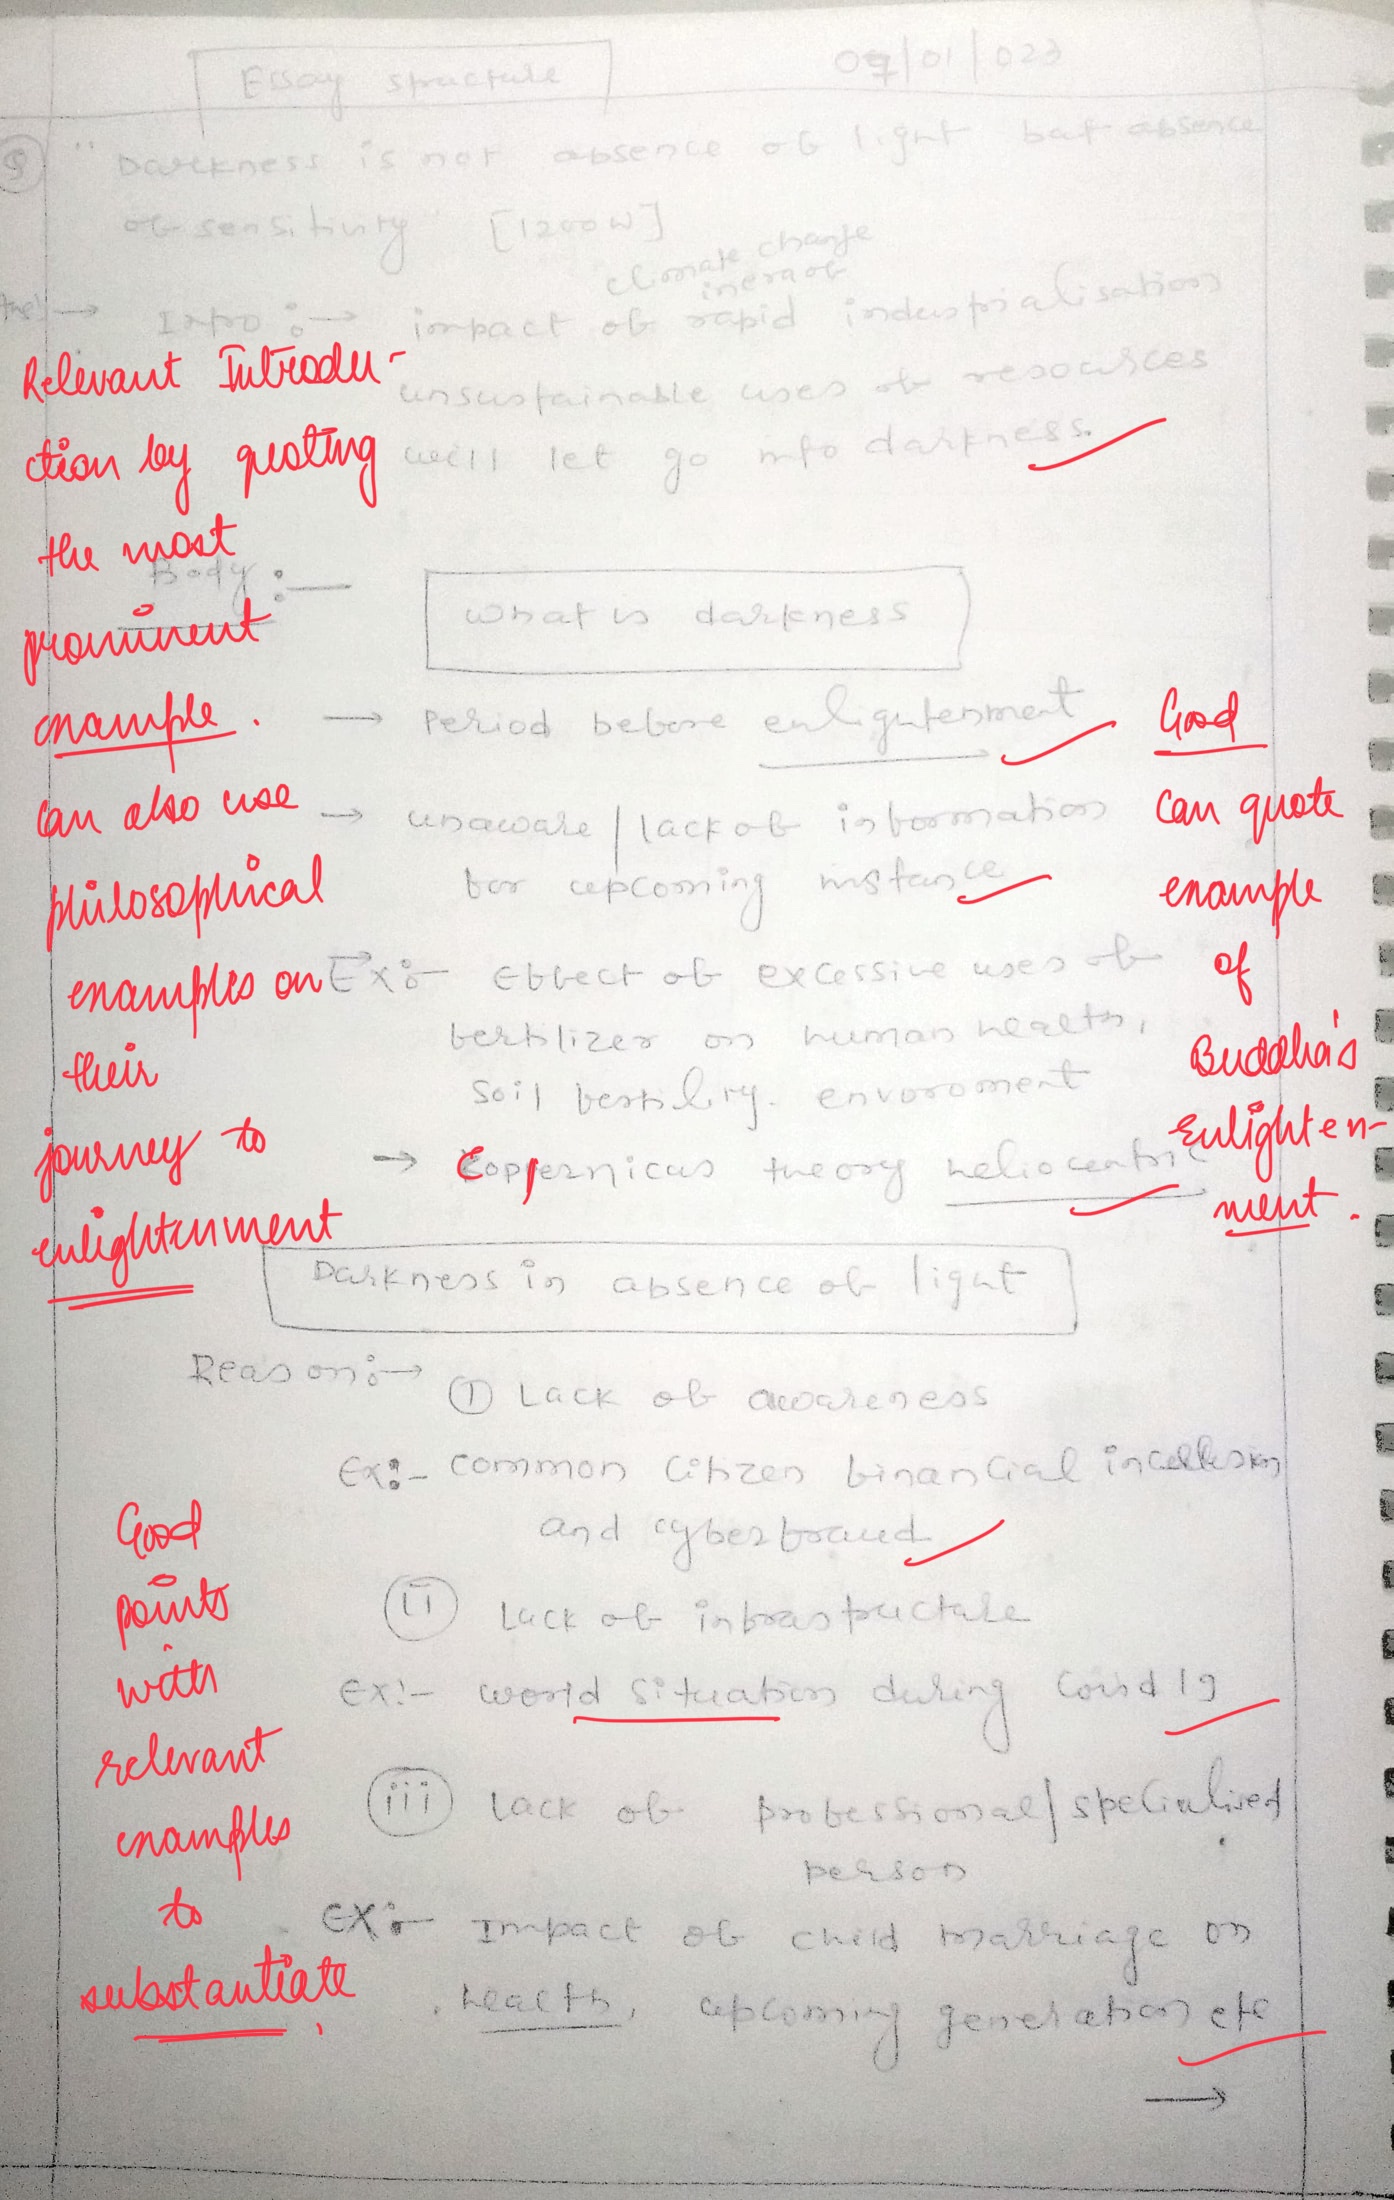 Essay structure
07/01/023
Q "Darkness is not absence of light but absence
of sensitivity" [1200W]
climate change
in era of
Intro :→ impact of rapid industrialisation
unsustainable uses of resources
will let go into darkness.
Relevant Introdu-
ction by quoting
the most
prominent
example.
can also use
philosophical
examples on
their
journey to
enlightenment
Body :—
What is darkness
→ Period before enlightenment
→ unaware / lack of information
for upcoming instance
Ex:- Effect of excessive uses of
fertilizer on human health,
soil fertility. envoroment
→ Coppernicus theory heliocentric
Good
can quote
example
of
Buddha's
Enlighten-
ment.
Darkness in absence of light
Reason:→
(i) Lack of awareness
Ex:- common citizen financial inclusion
and cyberfraud
(ii) Lack of infrastructure
Ex:- world situation during Covid 19
(iii) Lack of professional/specialised
person
Ex:- Impact of child marriage on
health, upcoming generation etc
→
Good
points
with
relevant
examples
to
substantiate,